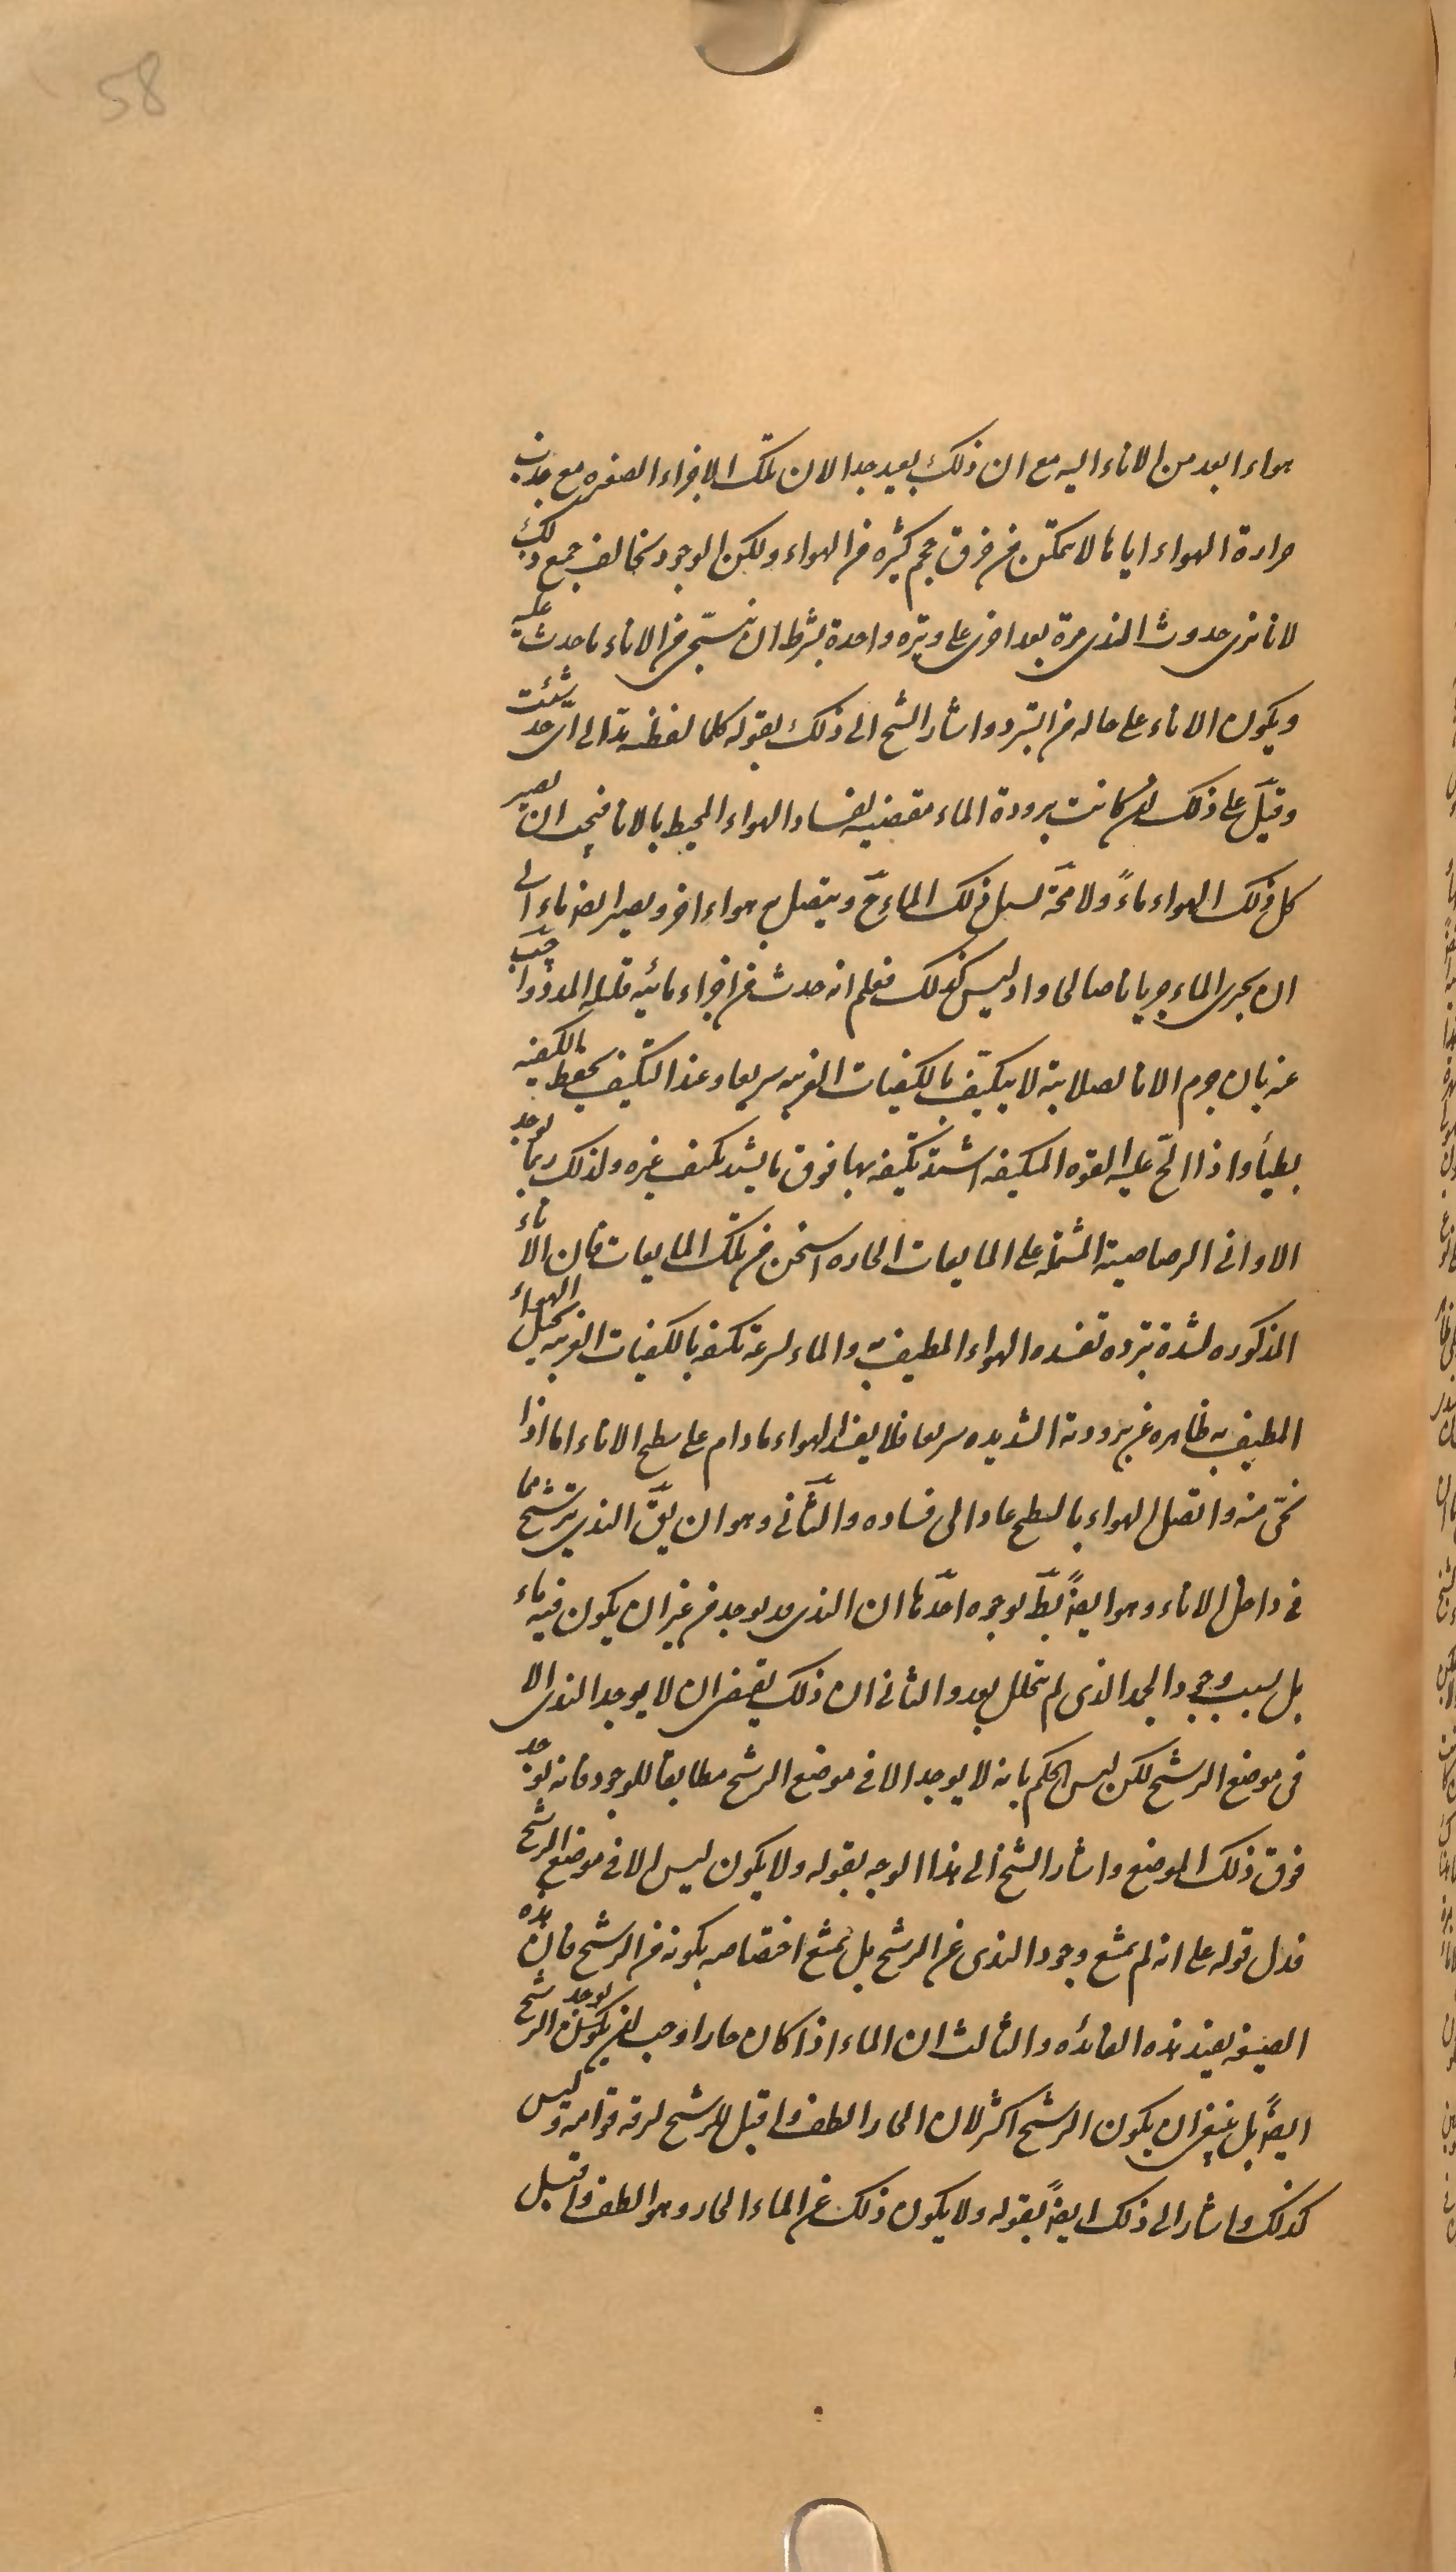 58
هواء ابعد من الاناء اليه مع ان ذلك بعيد جدا لان تلك الاجزاء الصغيره مع جذب
حرارة الهواء اياها لا تتمكن من خرق حجم كثيره من الهواء ولكن الوجود يخالف جميع ذلك
لانا نرى حدوث الندى مرة بعد اخرى على وتيره واحدة بشرط ان ينحى من الاناء ما حدث عليه
ويكون الاناء على حاله من التبرد واشار الشيخ الى ذلك بقوله كلما لقطته مد الى اى حد شئت
وقيل على ذلك لو كانت برودة الماء مقتضيه لفساد الهواء المحيط بالانا فيجب ان يصير
كل ذلك الهواء ماءً ولا محة يسيل ذلك الماء ح ويتصل به هواء اخر ويصير ايضا ماء الى
ان يجرى الماء جريانا صالحا واذ ليس كذلك فعلم انه حدث من اجزاء مائيه قليله المدد واجيب
عنه بان جرم الانا لصلابته لا يتكيف بالكيفيات الغريبه سريعا وعند التكيف يحفظ الكيفيه
بطيأ واذا الح عليه القوه المكيفه اشتد تكيفه بها فوق ما يشتد تكيف غيره ولذلك ربما يوجد
الاوانى الرصاصية المشتمله على المايعات الحاره اسخن من تلك المايعات فان الاناء
المذكوره لشدة تبرده تفسده الهواء المطيف به والماء لسرعة تكيفه بالكيفيات الغريبه يحيل الهواء
المطيف به ظاهره عن برودته الشديده سريعا فلا يفسد الهواء مادام على سطح الاناء اما اذا
نحى منه واتصل الهواء بالسطح عاد الى فساده والثانى وهو ان يق الندى يترشح مما
فى داخل الاناء وهو ايضً بط بوجوه احدها ان الندى قد يوجد من غير ان يكون فيه ماء
بل بسبب وجود الجمد الذى لم يتحلل بعد والثانى ان ذلك يقتضى ان لا يوجد الندى الا
فى موضع الرشح لكن ليس الحكم بانه لا يوجد الا فى موضع الرشح مطابقا للوجود فانه يوجد
فوق ذلك الموضع واشار الشيخ الى هذا الوجه بقوله ولا يكون ليس الا فى موضع الرشح
فدل قوله على انه لم يمنع وجود الندى عن الرشح بل يمنع اختصاصه بكونه من الرشح فان هذه
الصيغه يفيد هذه الفائده والثالث ان الماء اذا كان حارا وجب ان يوجد الرشح
ايضً بل ينبغى ان يكون الرشح اكثر لان الحار الطف واقبل للرشح لرقه قوامه وليس
كذلك واشار الى ذلك ايضً بقوله ولا يكون ذلك عن الماء الحار وهو الطف واقبل